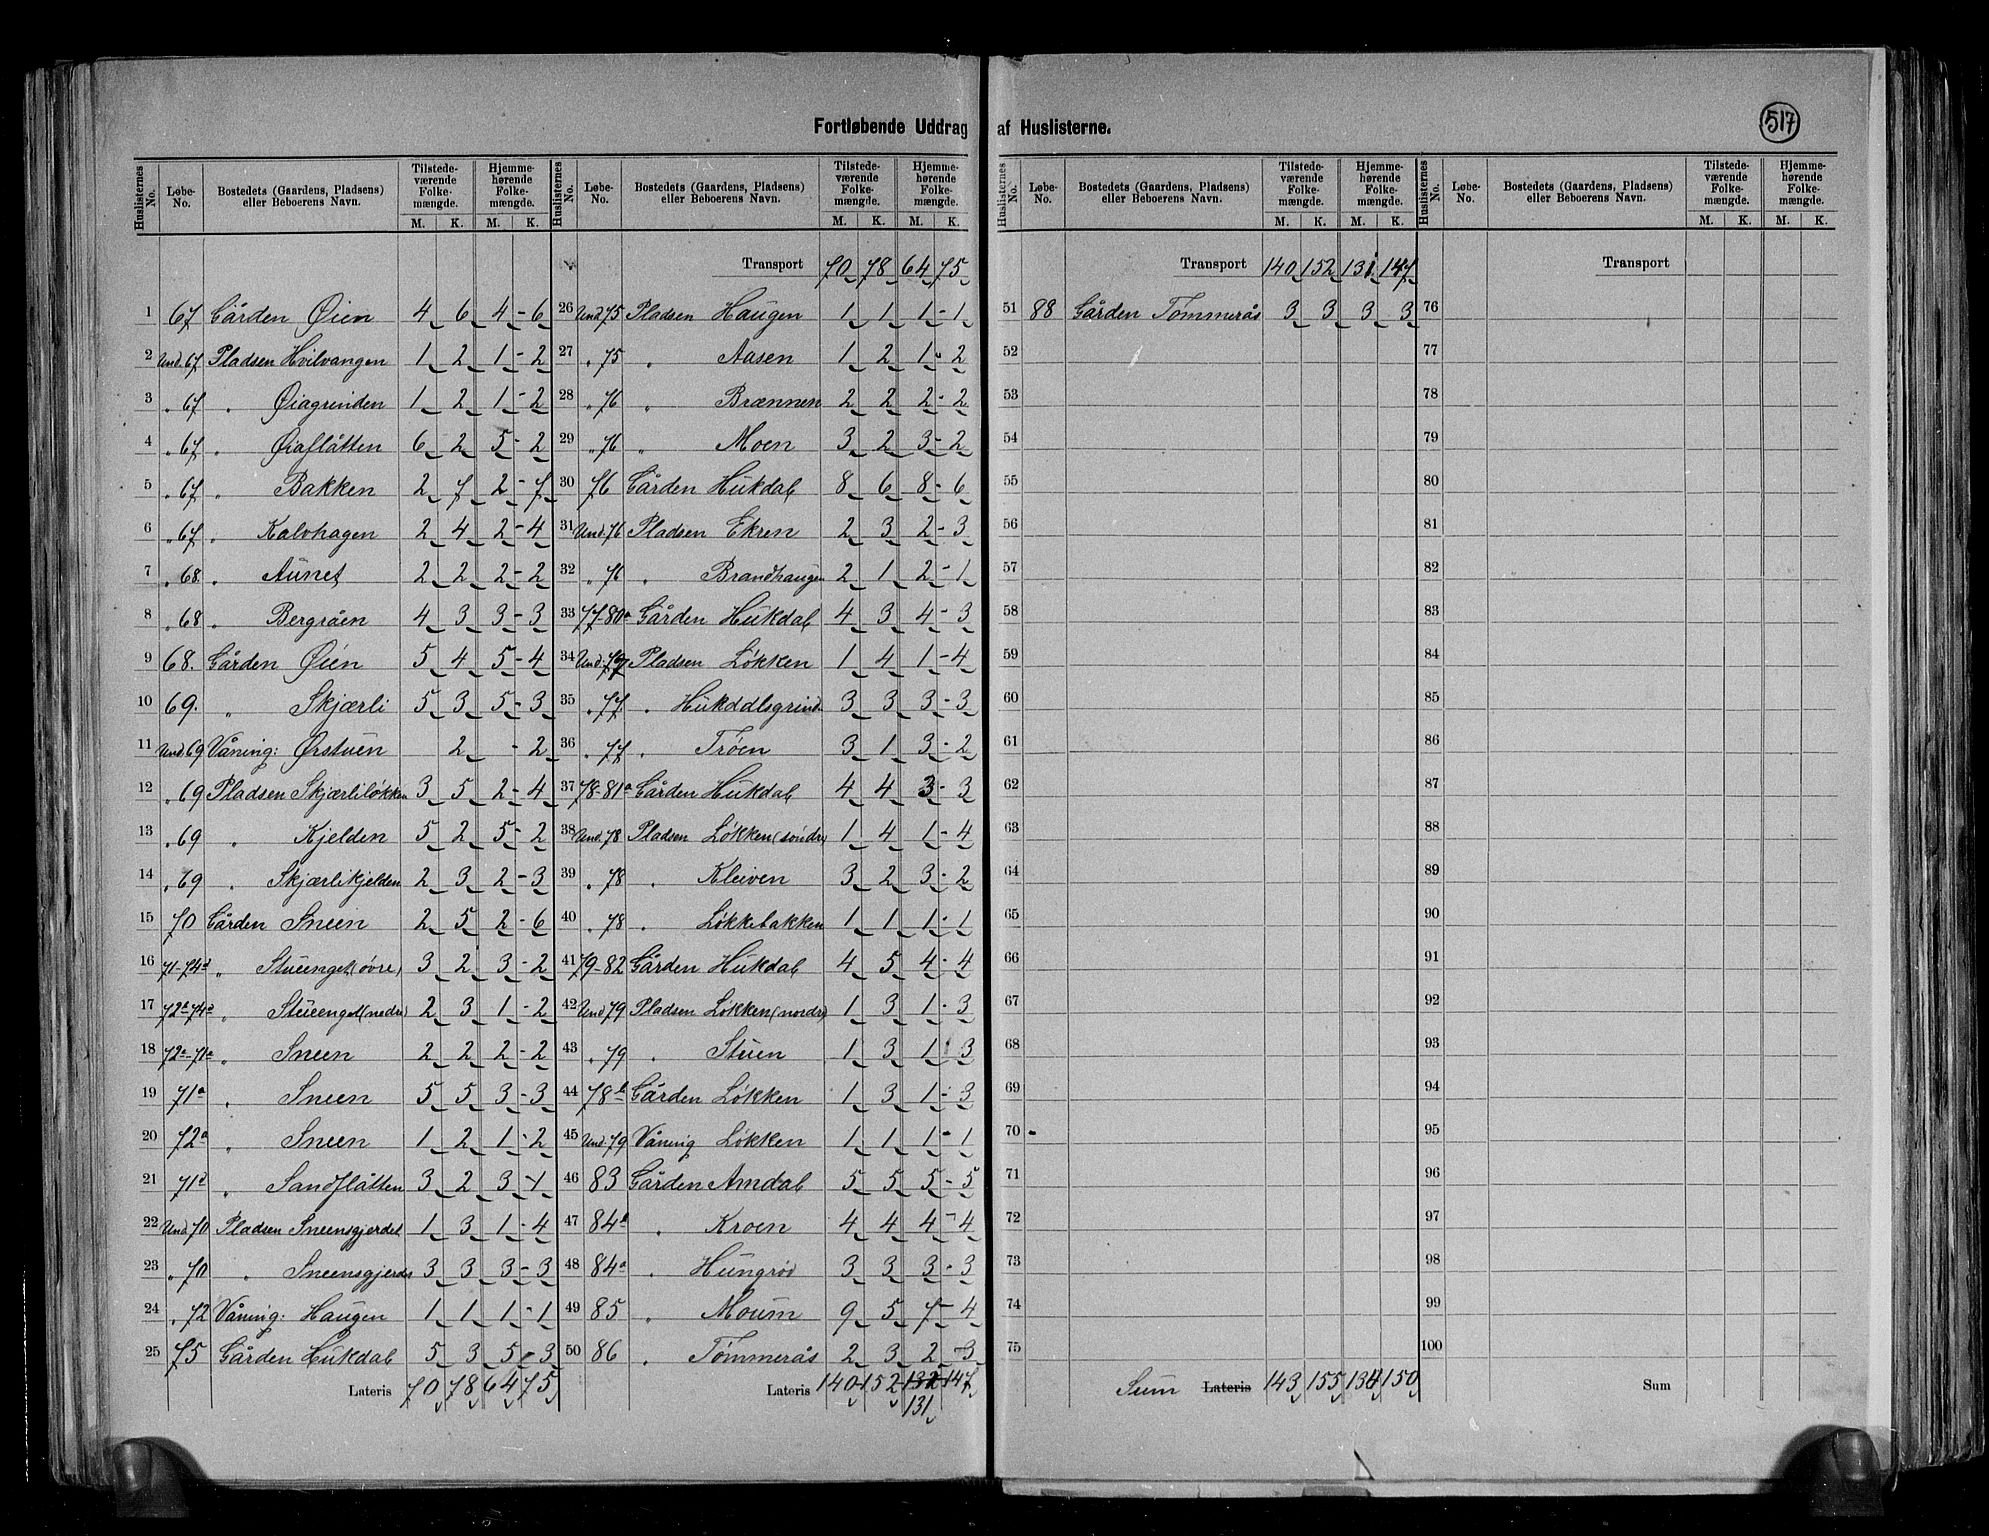 517
Fortløbende Uddrag af Huslisterne.
Huslisternes No. | Løbe-No. | Bostedets (Gaardens, Pladsens) eller Beboerens Navn. | Tilstedeværende Folkemængde. M. K. | Hjemmehørende Folkemængde. M. K.
1 67 Gården Øien 4 6 4 - 6
2 Und. 67 Pladsen Hvilvangen 1 2 1 - 2
3 " 67 " Øiagrinden 1 2 1 - 2
4 " 67 " Øiaflåtten 6 2 5 - 2
5 " 67 " Bakken 2 7 2 - 7
6 " 67 " Kalvhagen 2 4 2 - 4
7 " 68. " Aunet 2 2 2 - 2
8 " 68 " Bergråen 4 3 3 - 3
9 68. Gården Øien 5 4 5 - 4
10 69. " Skjærli 5 3 5 - 3
11 Und 69 Våning: Ørstuen 2 - 2
12 " 69 Pladsen Skjærliløkken 3 5 2 - 4
13 " 69 " Kjelden 5 2 5 - 2
14 " 69 " Skjærlikjelden 2 3 2 - 3
15 70 Gården Sneen 2 5 2 - 6
16 71-74d " Stuenget (øvre) 3 2 3 - 2
17 72a-74a " Stuenget (nedre) 2 3 1 - 2
18 72a-71a " Sneen 2 2 2 - 2
19 71a " Sneen 5 5 3 - 3
20 72a " Sneen 1 2 1 - 2
21 71d " Sandflåtten 3 2 3 - 1
22 Und 70 Pladsen Sneensgjerdet 1 3 1 - 4
23 " 70 " Sneensgjerdet 3 3 3 - 3
24 " 72 Våning: Haugen 1 1 1 - 1
25 75 Gården Hukdal 5 3 5 - 3
Lateris 70 78 64 75
Huslisternes No. | Løbe-No. | Bostedets (Gaardens, Pladsens) eller Beboerens Navn. | Tilstedeværende Folkemængde. M. K. | Hjemmehørende Folkemængde. M. K.
Transport 70 78 64 75
26 Und 75 Pladsen Haugen 1 1 1 - 1
27 " 75 " Aasen 1 2 1 - 2
28 " 76 " Brænnen 2 2 2 - 2
29 " 76 " Moen 3 2 3 - 2
30 76 Gården Hukdal 8 6 8 - 6
31 Und. 76 Pladsen Ekren 2 3 2 - 3
32 " 76 " Brandhaugen 2 1 2 - 1
33 77-80a Gården Hukdal 4 3 4 - 3
34 Und. 77 Pladsen Løkken 1 4 1 - 4
35 " 77 " Hukdalsgrind. 3 3 3 - 3
36 " 77 " Trøen 3 1 3 - 2
37 78-81a Gården Hukdal 4 4 3 - 3
38 Und. 78 Pladsen Løkken (søndre) 1 4 1 - 4
39 " 78 " Kleiven 3 2 3 - 2
40 " 78 " Løkkebakken 1 1 1 - 1
41 79-82 Gården Hukdal 4 5 4 - 4
42 Und 79 Pladsen Løkken (nordre) 1 3 1 - 3
43 " 79 " Stuen 1 3 1 3
44 78b Gården Løkken 1 3 1 - 3
45 Und. 79 Våning Løkken 1 1 1 - 1
46 83 Gården Amdal 5 5 5 - 5
47 84b " Kroen 4 4 4 - 4
48 84a " Hungrød 3 3 3 - 3
49 85 " Moum 9 5 7 - 4
50 86 " Tømmerås 2 3 2 - 3
Lateris 140 152 132 147
131
Huslisternes No. | Løbe-No. | Bostedets (Gaardens, Pladsens) eller Beboerens Navn. | Tilstedeværende Folkemængde. M. K. | Hjemmehørende Folkemængde. M. K.
Transport 140 152 131 147
51 88 Gården Tømmerås 3 3 3 3
52
53
54
55
56
57
58
59
60
61
62
63
64
65
66
67
68
69
70
71
72
73
74
75
Sum Lateris 143 155 134 150
Huslisternes No. | Løbe-No. | Bostedets (Gaardens, Pladsens) eller Beboerens Navn. | Tilstedeværende Folkemængde. M. K. | Hjemmehørende Folkemængde. M. K.
Transport
76
77
78
79
80
81
82
83
84
85
86
87
88
89
90
91
92
93
94
95
96
97
98
99
100
Sum